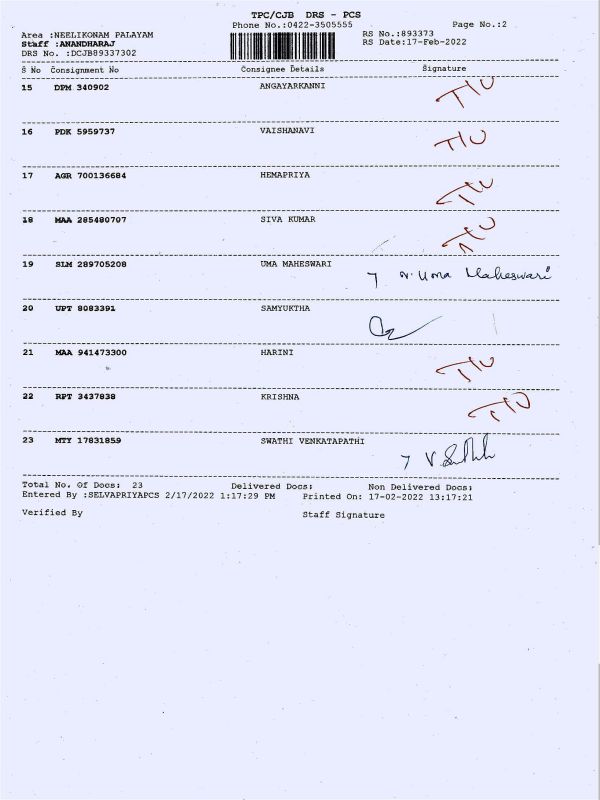 TPC/CJB DRS - PCS
Phone No.:0422-3505555 Page No.:2
Area :NEELIKONAM PALAYAM RS No.:893373
Staff :ANANDHARAJ RS Date:17-Feb-2022
DRS No. :DCJB89337302
S No Consignment No Consignee Details Signature
15 DPM 340902 ANGAYARKANNI T/U
16 PDK 5959737 VAISHANAVI T/U
17 AGR 700136684 HEMAPRIYA T/U
18 MAA 285480707 SIVA KUMAR T/U
19 SLM 289705208 UMA MAHESWARI N. Uma Maheswari
20 UPT 8083391 SAMYUKTHA
21 MAA 941473300 HARINI T/U
22 RPT 3437838 KRISHNA T/U
23 MTY 17831859 SWATHI VENKATAPATHI
Total No. Of Docs: 23 Delivered Docs: Non Delivered Docs:
Entered By :SELVAPRIYAPCS 2/17/2022 1:17:29 PM Printed On: 17-02-2022 13:17:21
Verified By Staff Signature